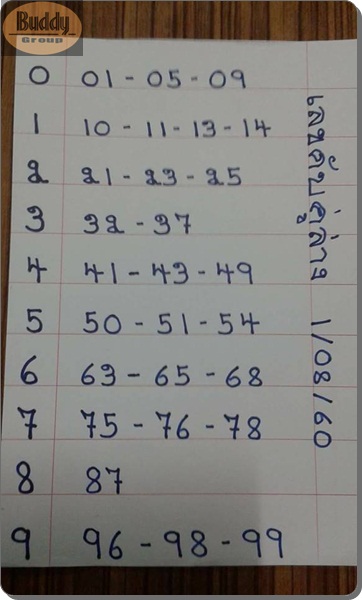 Buddy
Group
0 01 - 05 - 09
1 10 - 11 - 13 - 14
2 21 - 23 - 25
3 32 - 37
4 41 - 43 - 49
5 50 - 51 - 54
6 63 - 65 - 68
7 75 - 76 - 78
8 87
9 96 - 98 - 99
เลขดับคู่ล่าง 1/08/60